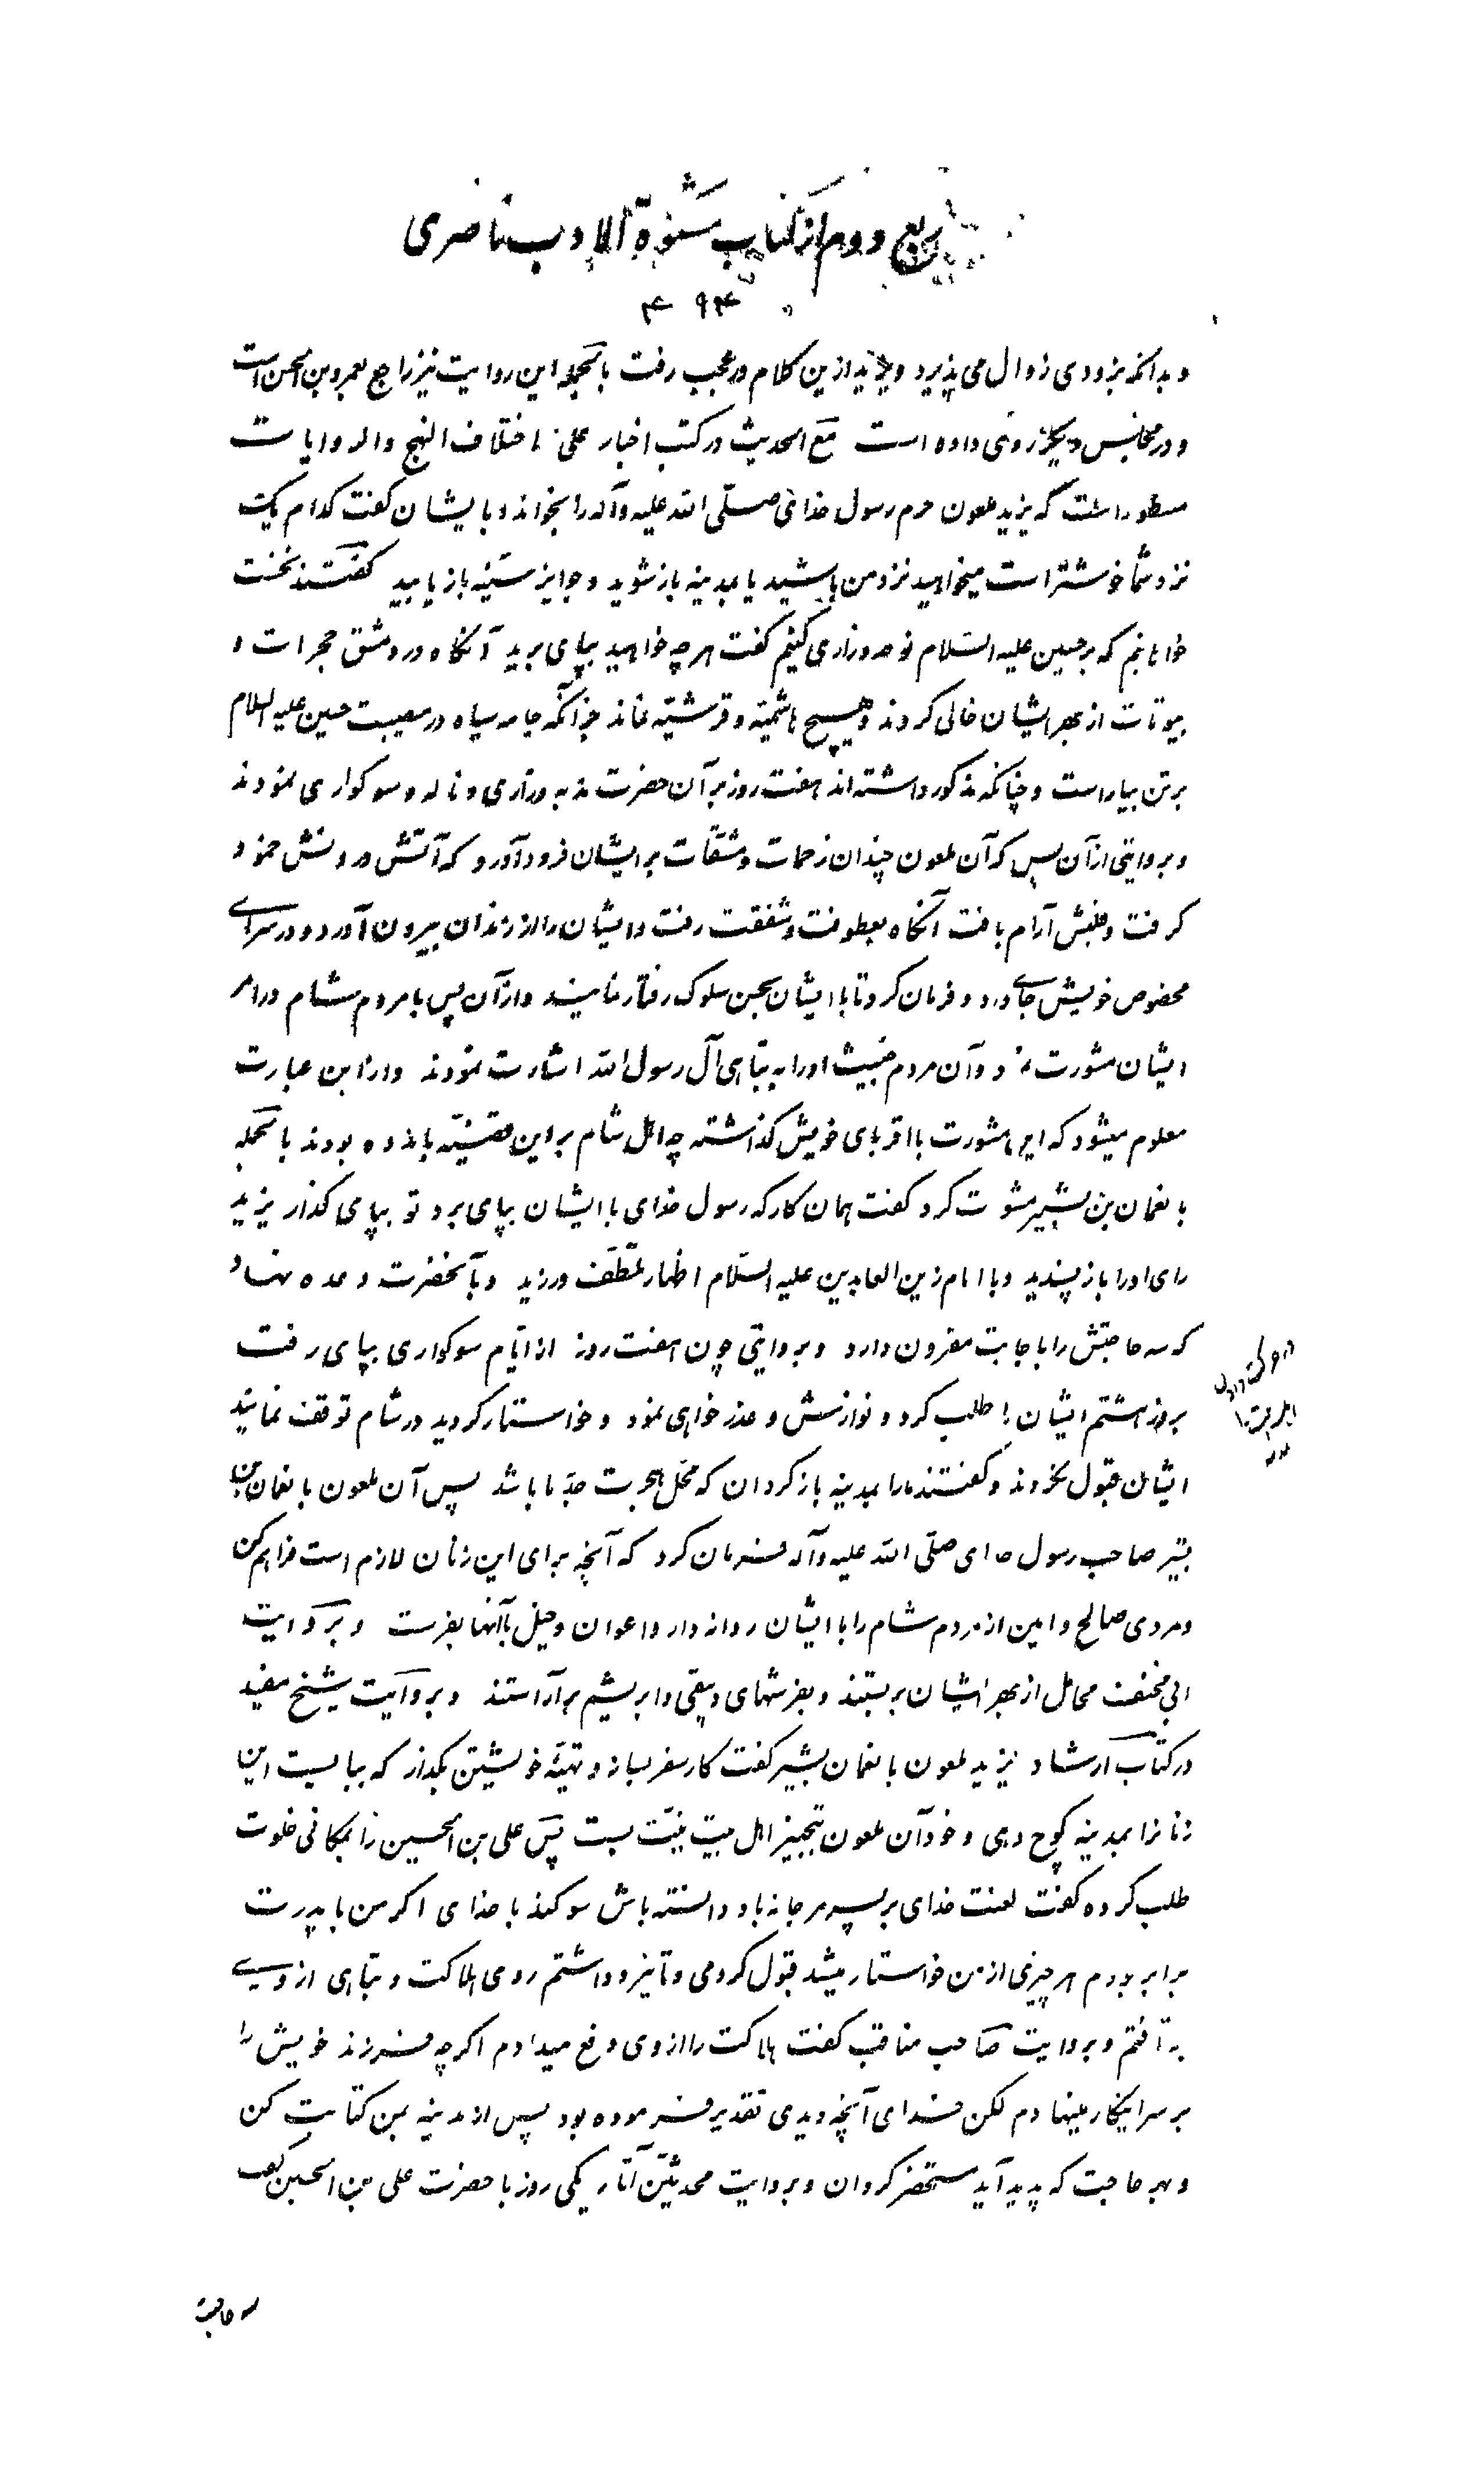 ربع دوم از کتاب مشکوة الادب ناصری
۴۹۴
و بدانکه بزودی زوال می پذیرد و یزید ازین کلام در عجب رفت بالجمله این روایت نیز راجع بعمرو بن الحسن است
و در مجالس دیگر روی داده است مع الحدیث در کتب اخبار علی اختلاف النهج والروایات
مسطور است که یزید ملعون حرم رسول خدای صلّی الله علیه وآله را بخواند و با ایشان گفت کدام یک
نزد شما خوشتر است میخواهید نزد من باشید یا بمدینه باز شوید و جوایز سنیّه باز یابید گفتند نخست
خواهانیم که بر حسین علیه السّلام نوحه و زاری کنیم گفت هر چه خواهید بپای برید آنگاه در دمشق حجرات و
بیوتات از بهر ایشان خالی کردند و هیچ هاشمیّه و قرشیّه نماند جز آنکه جامه سیاه در مصیبت حسین علیه السلام
بر تن بیاراست و چنانکه مذکور داشته اند هفت روز بر آن حضرت ندبه و زاری و ناله و سوگواری نمودند
و بروایتی از آن پس که آن ملعون چندان زحمات و مشقّات بر ایشان فرود آورد که آتش درونش خمود
گرفت و قلبش آرام یافت آنگاه بعطوفت و شفقت رفت و ایشان را از زندان بیرون آورد و در سرای
مخصوص خویش جای داد و فرمان کرد تا با ایشان بحسن سلوک رفتار نمایند و از آن پس با مردم شام در امر
ایشان مشورت نمود و آن مردم خبیث او را به تباهی آل رسول الله اشارت نمودند و از این عبارت
معلوم میشود که این مشورت با اقربای خویش گذاشته چه اهل شام بر این قضیّه بانده بودند بالجمله
با نعمان بن بشیر مشورت کرد گفت همان کار که رسول خدای با ایشان بپای برد تو بپای گذار یزید
رای او را باز پسندید و با امام زین العابدین علیه السّلام اظهار تلطّف ورزید و بآنحضرت وعده نهاد
که سه حاجتش را باجابت مقرون دارد و بروایتی چون هفت روز از ایّام سوگواری بپای رفت
بروز هشتم ایشان را طلب کرد و نوازش و عذر خواهی نمود و خواستار گردید در شام توقف نمایند
ایشان قبول نکردند و گفتند ما را بمدینه باز گردان که محل هجرت جدّ ما باشد پس آن ملعون با نعمان بن
بشیر صاحب رسول خدای صلّی الله علیه وآله فرمان کرد که آنچه برای این زنان لازم است فراهم کن
و مردی صالح و امین از مردم شام را با ایشان روانه دار و اعوان و خیل با آنها بفرست و بروایت
ابی مخنف محامل از بهر ایشان بر بستند و بفرشهای دیبقی و ابریشم بر آراستند و بروایت شیخ مفید
در کتاب ارشاد یزید ملعون با نعمان بشیر گفت کار سفر بساز و تهیّه خویشتن بگذار که ببایست این
زنانرا بمدینه کوچ دهی و خود آن ملعون بتجهیز اهل بیت نیّت بست پس علی بن الحسین را بمکانی خلوت
طلب کرده گفت لعنت خدای بر پسر مرجانه باد دانسته باش سوگند با خدای اگر من با پدرت
برابر بودم هر چیزی از من خواستار میشد قبول کردمی و تا نیرو داشتم روی هلاکت و تباهی از وی
بر تافتم و بروایت صاحب مناقب گفت هلاکت را از وی دفع میدادم اگر چه فرزند خویش را
بر سر اینکار مینهادم لکن خدای آنچه دیدی تقدیر فرموده بود پس از مدینه بمن کتابت کن
و بهر حاجت که پدید آید مستحضر گردان و بروایت محدثین آثار یکی روز با حضرت علی بن الحسین گفت
سه حاجت